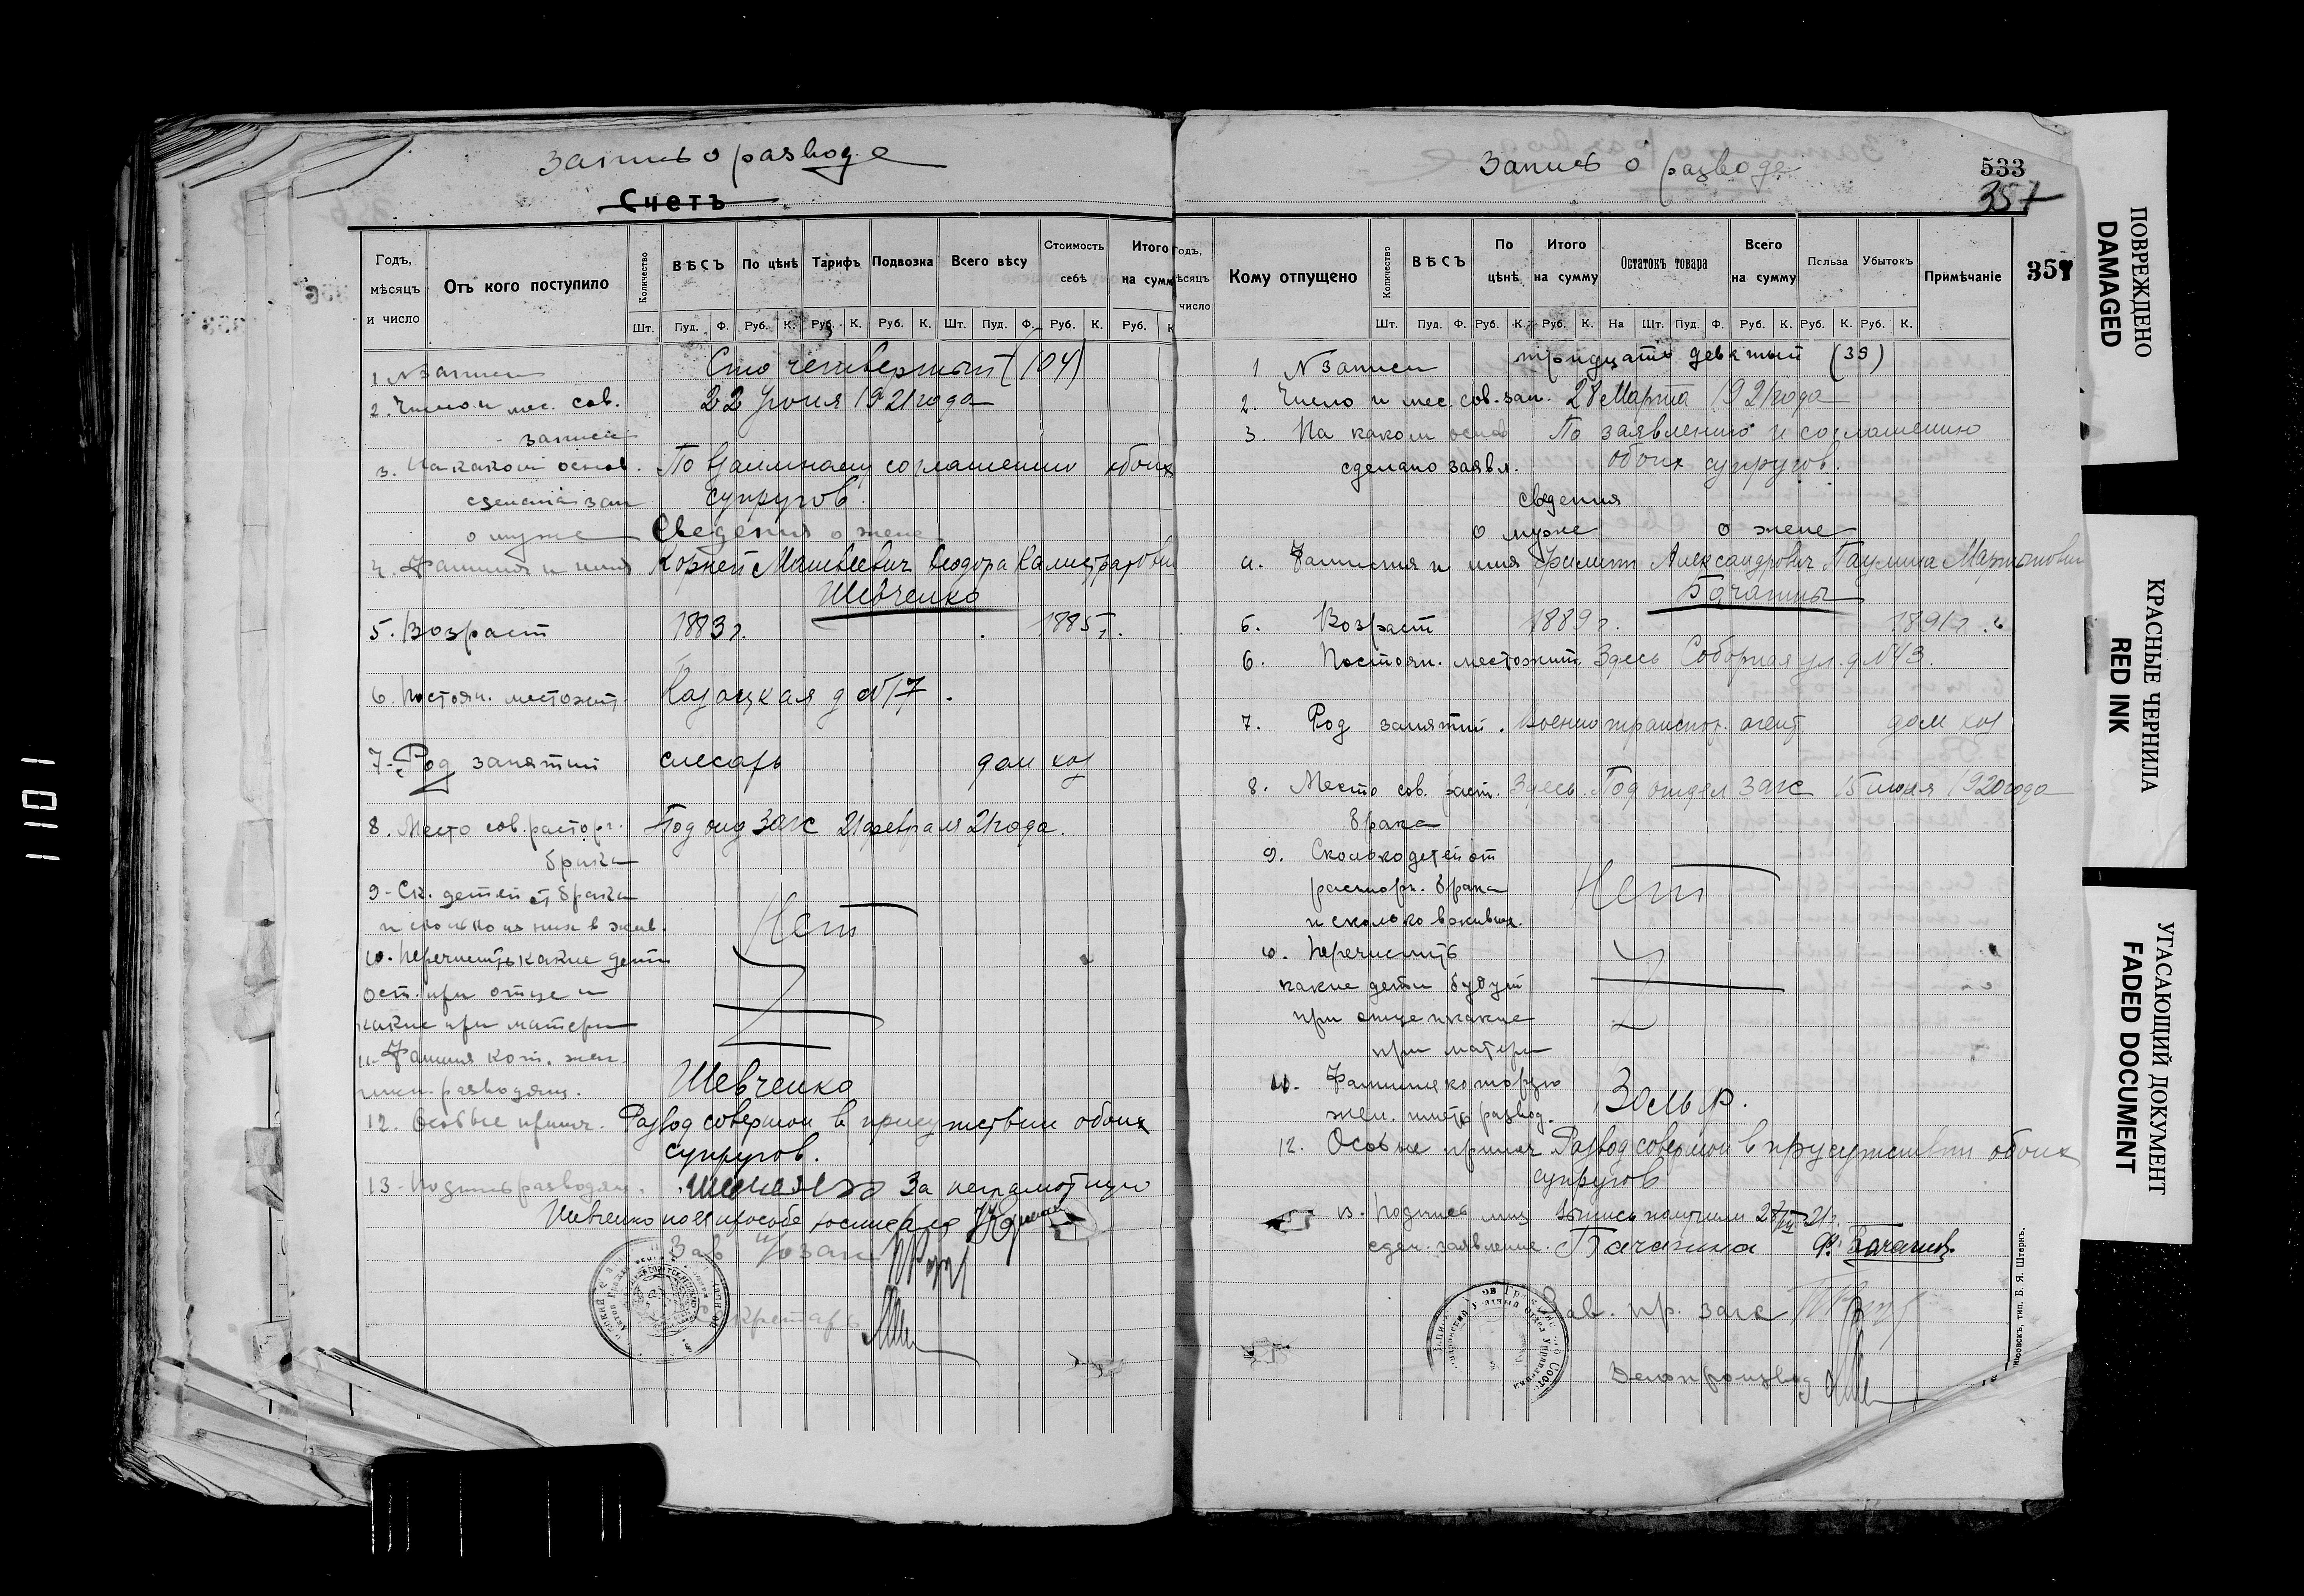 Запись о разводе
Счетъ
Годъ, мѣсяцъ и число
Отъ кого поступило
Количество
ВѢСЪ
По цѣнѣ
Тарифъ
Подвозка
Всего вѣсу
Стоимость себѣ
Итого на сумм
Шт. Пуд. Ф. Руб. К. Руб. К. Руб. К. Шт. Пуд. Ф. Руб. К. Руб. К
1 N записи Сто четвертый (104)
2. Число и мес. сов. 22 Июня 1921 года
записи
3. На каком основ. По взаимному соглашению обоих
сделана зап супругов.
о муже Сведения о жене
4. Фамилия и имя Корней Матвеевич Феодора Калистратовн
Шевченко
5. Возраст 1883 г. 1885 г.
6. Постоян. местожит. Казацкая д N 17.
7. Род занятий слесарь дом хоз
8. Место сов. расторг. Под отд Загс 21 февраля 21 года.
брака
9. Ск. детей от брака
и сколько из них в жив. Нет
10. Перечислить какие дети
ост. при отце и
какие при матери
11. Фамилия кот. жел.
разводящ. Шевченко
12. Особые примеч. Развод совершон в присутствии обоих
супругов.
13. Подпись разводящ. За неграмотную
Шевченко по её просьбе
Зав
Секретарь
Запись о разводе
533
357
357
Годъ, мѣсяцъ число
Кому отпущено
Количество
ВѢСЪ
По цѣнѣ
Итого на сумму
Остатокъ товара
Всего на сумму
Польза
Убытокъ
Примѣчаніе
Шт. Пуд. Ф. Руб. К. Руб. К. На Шт. Пуд. Ф. Руб. К. Руб. К. Руб. К.
1 N Записи тридцать девятый (39)
2. Число и мес. сов. зап. 28 Марта 1921 года
3. На каком основ По заявлению и соглашению
сделано заявл. обоих супругов.
сведения
о муже о жене
4. Фамилия и имя Александрович Паулина Мартыновн
5. Возраст 1889 г. 1891 г.
6. Постоян. местожит. Здесь Соборная ул. д N 43.
7. Род занятий. Военно транспор. агент. дом хоз
8. Место сов. раст. Здесь. Под отдел Загс 15 июня 1920 года
брака
9. Сколько детей от
расторг. брака Нет
и сколько в живых.
10. Перечислить
какие дети будут
при отце и какие
при матери
11. Фамилия которую
жел. иметь развод.
12. Особые примеч Развод совершон в присутствии обоих
супругов
13. Подпись лиц Выпись получили 28/III 21 г.
сдел. заявление.
Зав. пр. загс
Делопроизвод
тип. Б. Я. Штернъ.
ПОВРЕЖДЕНО
DAMAGED
КРАСНЫЕ ЧЕРНИЛА
RED INK
УГАСАЮЩИЙ ДОКУМЕНТ
FADED DOCUMENT
1101